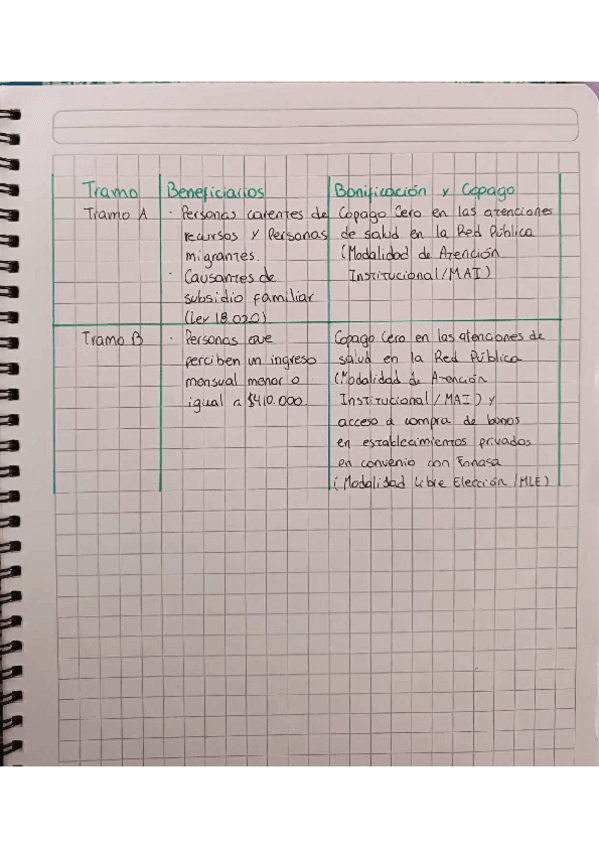 Tramo
Beneficiarios
Bonificación y Copago
Tramo A
· Personas carentes de
recursos y Personas
migrantes.
· Causantes de
subsidio familiar
(Ley 18.020)
Copago Cero en las atenciones
de salud en la Red Pública
(Modalidad de Atención
Institucional/MAI)
Tramo B
· Personas que
perciben un ingreso
mensual menor o
igual a $410.000
Copago Cero en las atenciones de
salud en la Red Pública
(Modalidad de Atención
Institucional/MAI) y
acceso a compra de bonos
en establecimientos privados
en convenio con Fonasa
(Modalidad Libre Elección/MLE)